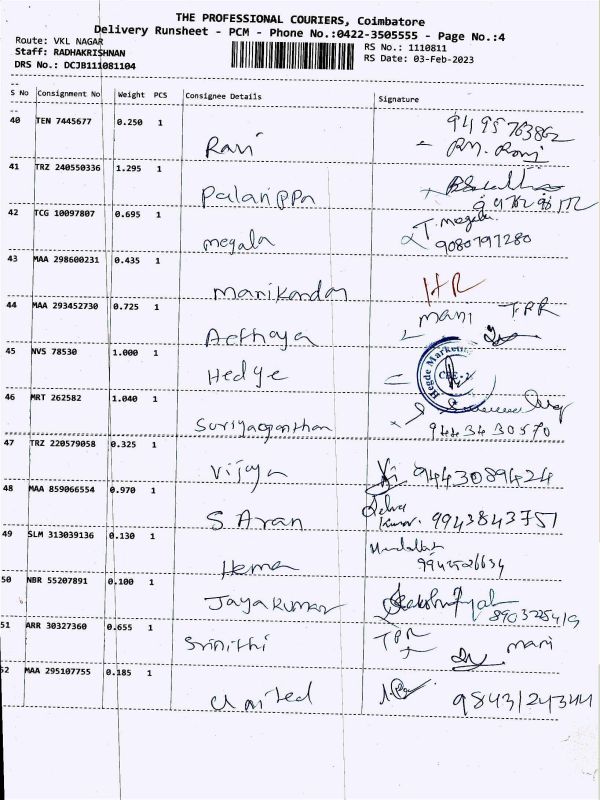 THE PROFESSIONAL COURIERS, Coimbatore
Delivery Runsheet - PCM - Phone No.:0422-3505555 - Page No.:4
Route: VKL NAGAR
RS No.: 1110811
Staff: RADHAKRISHNAN
RS Date: 03-Feb-2023
DRS No.: DCJB111081104
S No Consignment No Weight PCS Consignee Details Signature
40 TEN 7445677 0.250 1 Ravi
41 TRZ 240550336 1.295 1 Palanippa
42 TCG 10097807 0.695 1 megala T. megala
9080797280
43 MAA 298600231 0.435 1 Manikandan HR
44 MAA 293452730 0.725 1 mani TPR
45 NVS 78530 1.000 1 Hedge Hegde Marketing
46 MRT 262582 1.040 1
9443430570
47 TRZ 220579058 0.325 1 Vijaya 9443089424
48 MAA 859066554 0.970 1 S Aran Selva
Kumar. 9943843751
49 SLM 313039136 0.130 1 Hema
50 NBR 55207891 0.100 1 Jayakumar
51 ARR 30327360 0.655 1 Srinithi TPR mani
52 MAA 295107755 0.185 1 United